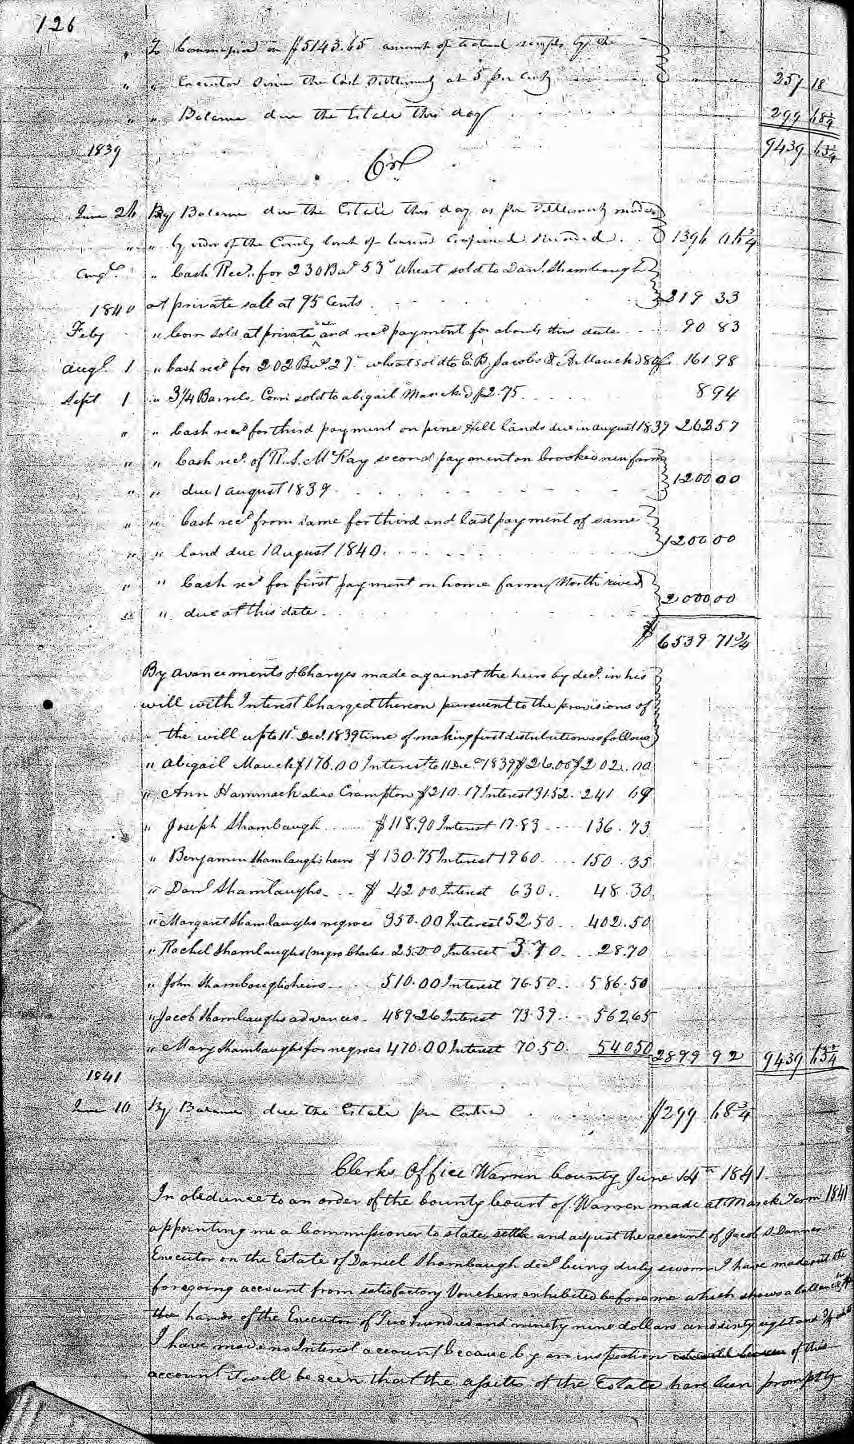 126
" To Commission on $5143.65 amount of actual receipts by the
" " Executor Since the last Settlement at 5 per Cent 257 18
" " Balance due the Estate this day 299 68¾
1839 9439 63¾
Cr
June 26 By Balance due the Estate this day as per Settlement made
" " by order of the County Court of Warren Recorded 1396 06¾
Augt " Cash Recd. for 230 Bus 53 wheat sold to Danl. Shambaugh
1840 at private sale at 95 Cents 219 33
Feby " Corn sold at private sale and recd payment for about this date 90 83
Augt 1 " Cash recd for 202 Bus 27 wheat sold to E.B. Jacobs & A. Mauck @ 80 161 98
Sept 1 " 3¼ Barrels Corn sold to abigail Mauck @ $2.75 8 94
" " Cash recd for third payment on pine Hill lands due in august 1839 262 57
" " Cash recd of R. S. McKay second payment on Brookes run farm
" " due 1 august 1839 1200 00
" " Cash recd from same for third and last payment of same
" " land due 1 August 1840 1200 00
" " Cash recd for first payment on home farm (North river)
" " due at this date 2000 00
$ 6539 71¾
By avancements & Charges made against the heirs by decd. in his
will with Interest Charged thereon pursuent to the provisions of
" the will up to 11 Decr. 1839 time of making first distribution as follows
" Abigail Mauck $176.00 Interest to 11 Decr 1839 $26.00 $202.00
" Ann Hammack alias Crampton $210.17 Interest 31.52 241 69
" Joseph Shambaugh $118.90 Interest 17.83 136.73
" Benjamin Shambaughs heirs $130.75 Interest 19 60 150.35
" Danl Shambaughs $ 42 00 Interest 6 30 48.30
" Margaret Shambaughs negroes 350.00 Interest 52 50 402.50
" Rachel Shambaughs (negro Charles 25.00 Interest 3 70 28.70
" John Shambaughs heirs 510.00 Interest 76.50 586.50
" Jacob Shambaughs advances 489.26 Interest 73.39 562 65
" Mary Shambaughs for negroes 470.00 Interest 70.50 540 50 2899 92 9439 63¾
1841
June 10 By Balance due the Estate per Contra $299 68¾
Clerks Office Warren County June 14th 1841.
In obedience to an order of the County Court of Warren made at March Term 1841
appointing me a Commissioner to state settle and adjust the account of Jacob S. Danner
Executor on the Estate of Daniel Shambaugh decd being duly sworn I have made out the
foregoing account from satisfactory Vouchers exhibited before me which shows a ballance in
the hands of the Executor of Two hundred and ninety nine dollars and sixty eight and ¾
I have made no Interest account because by an inspection of this
account it will be seen that the assetts of the Estate have been promptly